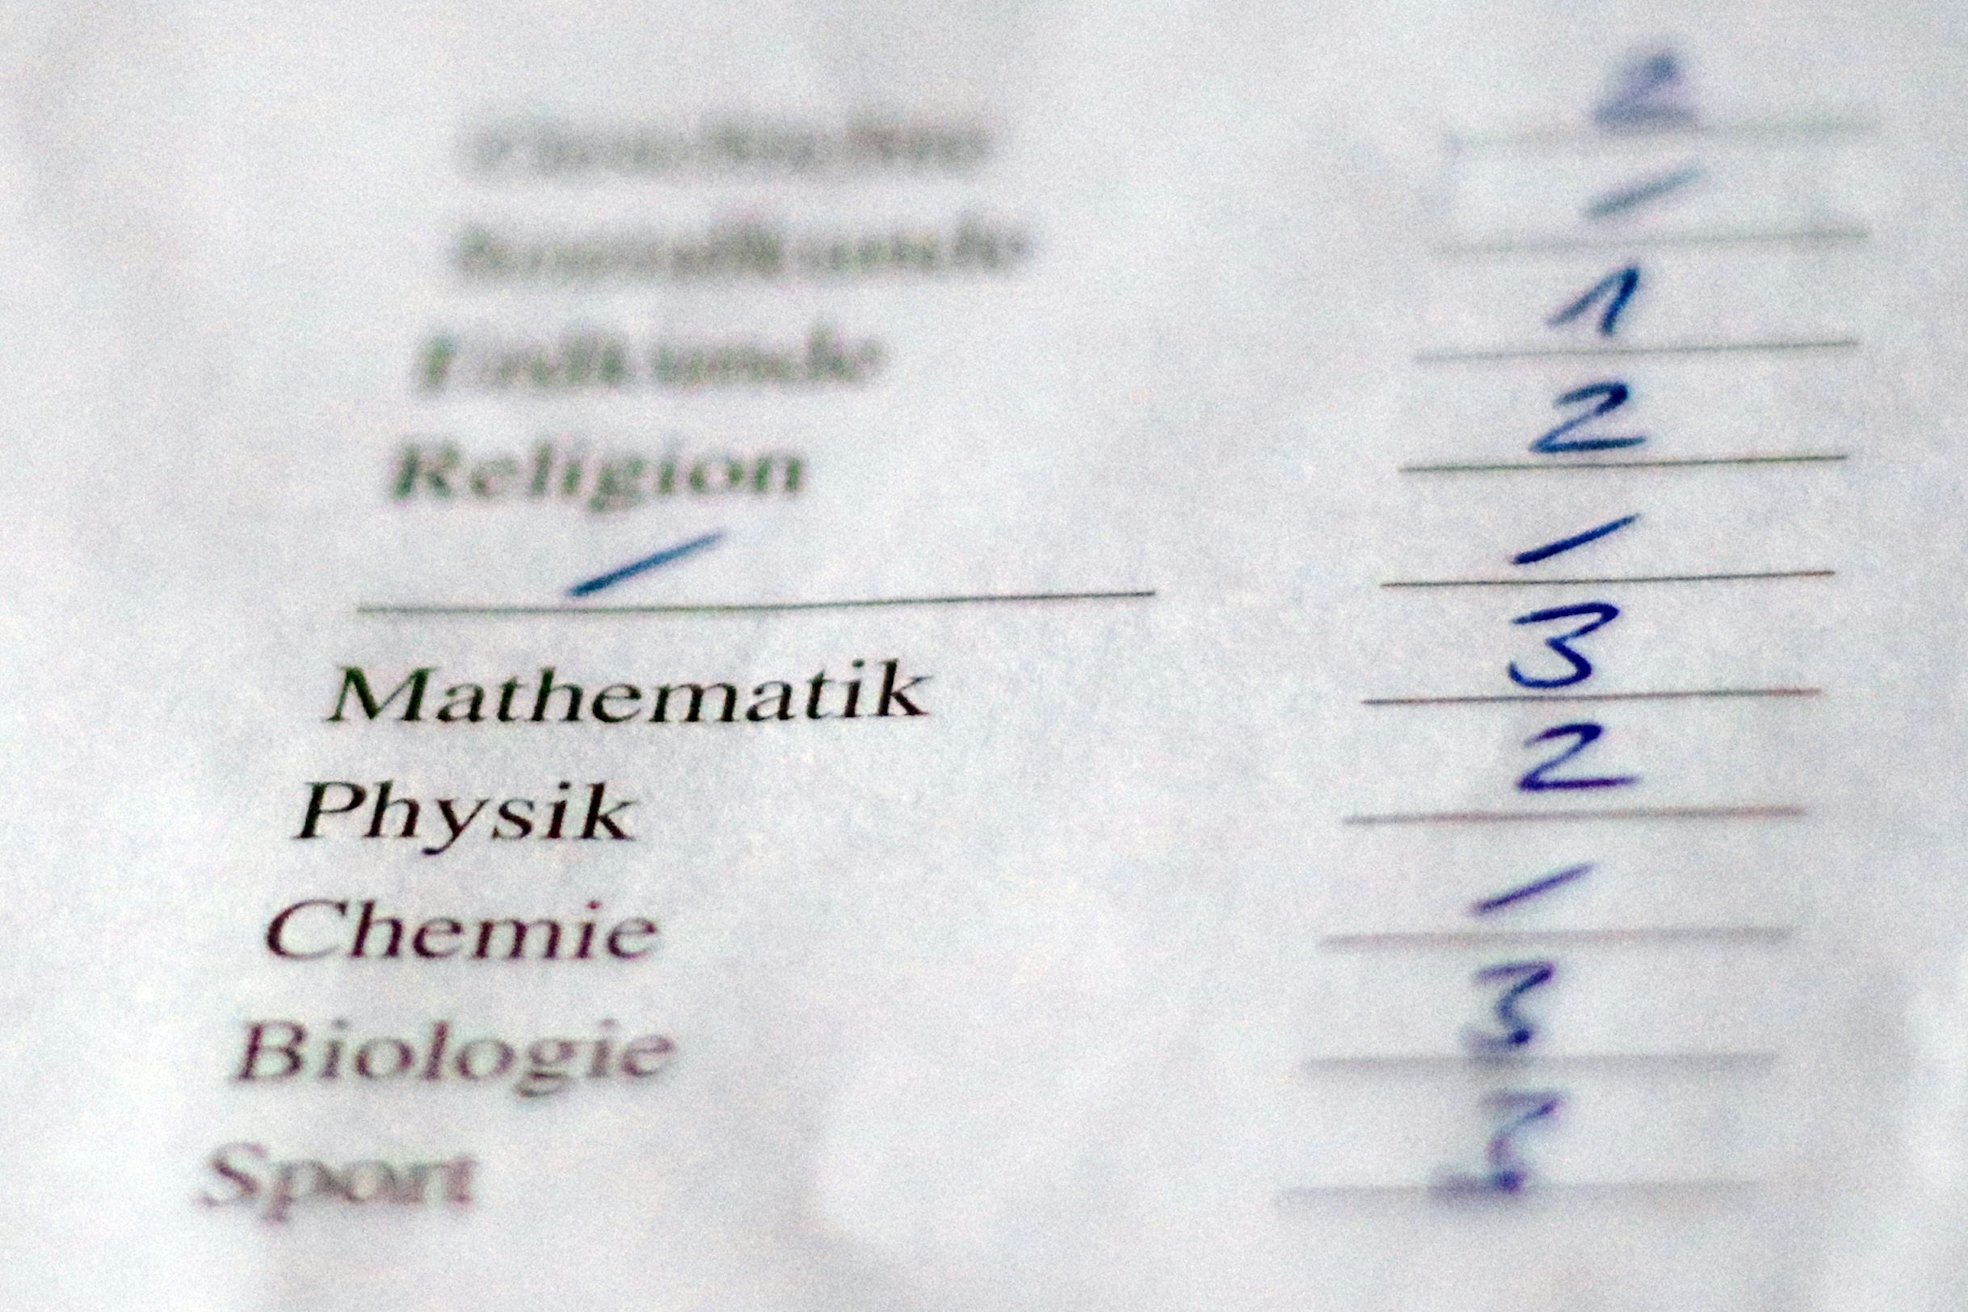 2
Sozialkunde /
Erdkunde 1
Religion 2
/ /
Mathematik 3
Physik 2
Chemie /
Biologie 3
Sport 3